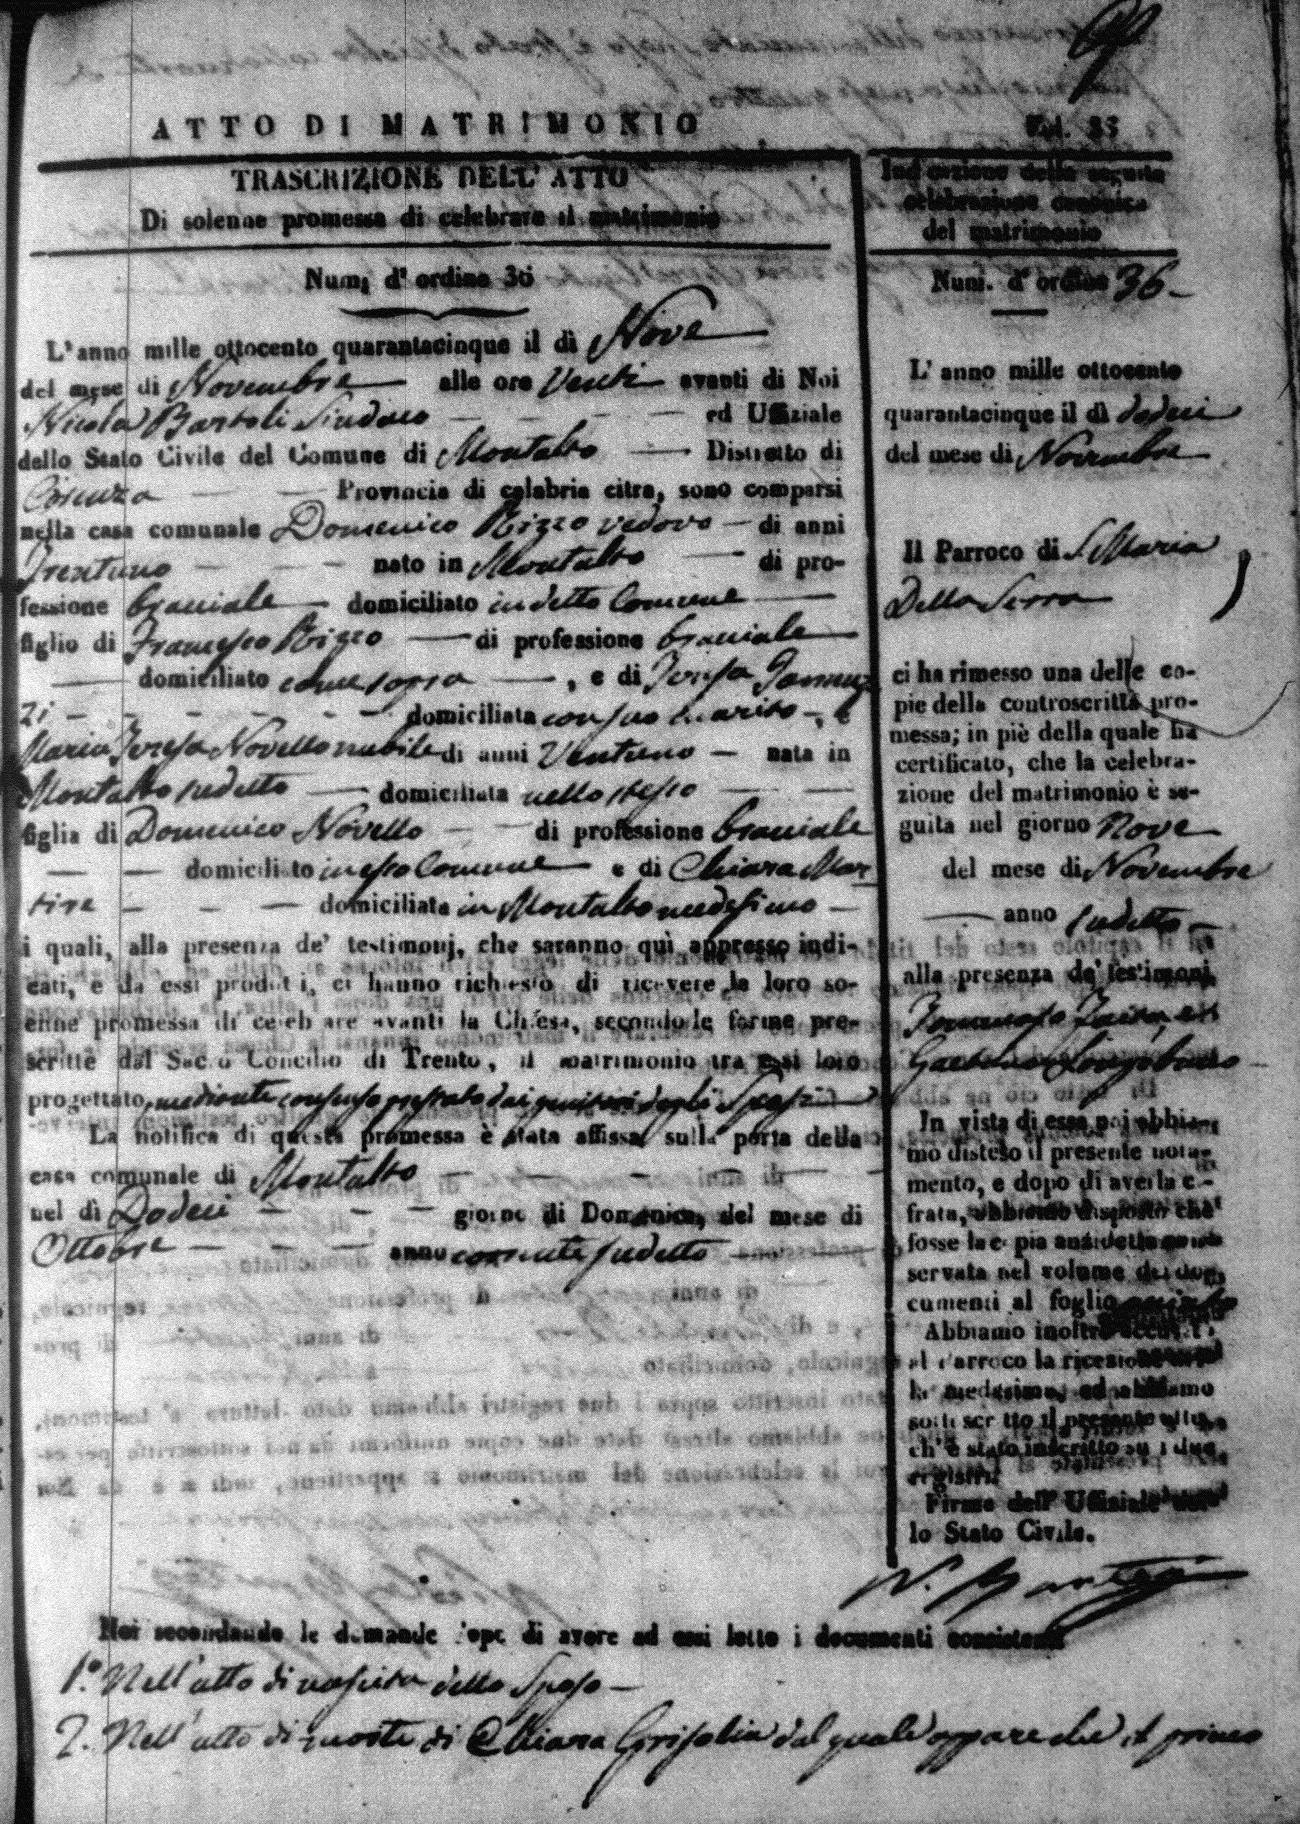 ATTO DI MATRIMONIO
Fol. 35
TRASCRIZIONE DELL' ATTO
Di solenne promessa di celebrare il matrimonio
Num. d' ordine 36
L' anno mille ottocento quarantacinque il dì Nove
del mese di Novembre alle ore Venti avanti di Noi
Nicola Bartoli Sindaco ed Uffiziale
dello Stato Civile del Comune di Montalto Distretto di
Cosenza Provincia di calabria citra, sono comparsi
nella casa comunale Domenico Rizzo vedovo di anni
Trentuno nato in Montalto di pro-
fessione bracciale domiciliato in detto Comune
figlio di Francesco Rizzo di professione bracciale
domiciliato come sopra, e di Teresa Iannuz
zi domiciliata con suo marito, e
Maria Teresa Novello nubile di anni Ventuno nata in
Montalto sudetto domiciliata nello stesso
figlia di Domenico Novello di professione bracciale
domiciliato in esso Comune e di Chiara Mar
tire domiciliata in Montalto medesimo
i quali, alla presenza de' testimonj, che saranno quì appresso indi-
cati, e da essi prodotti, ci hanno richiesto di ricevere la loro so-
enne promessa di celebrare avanti la Chiesa, secondo le forme pre-
scritte dal Sacro Concilio di Trento, il matrimonio tra essi loro
progettato, mediante consenso prestato dai genitori degli Sposi
La notifica di questa promessa è stata affissa sulla porta della
casa comunale di Montalto
nel dì Dodeci giorno di Domenica, del mese di
Ottobre anno corrente sudetto
Indicazione della seguita
celebrazione canonica
del matrimonio
Num. d' ordine 36
L' anno mille ottocento
quarantacinque il dì dodeci
del mese di Novembre
Il Parroco di S. Maria
Della Serra
ci ha rimesso una delle co-
pie della controscritta pro-
messa; in piè della quale ha
certificato, che la celebra-
zione del matrimonio è se-
guita nel giorno Nove
del mese di Novembre
anno sudetto
alla presenza de' testimonj
Tommaso
Gaetano Longobucco
In vista di essa noi abbia-
mo disteso il presente nota-
mento, e dopo di averla ci-
frata, abbiamo disposto che
fosse la copia anzidetta con-
servata nel volume dei do-
cumenti al foglio
Abbiamo inoltre accusato
al Parroco la ricezione della
medesima, ed abbiamo
sottoscritto il presente atto
ch' è stato inscritto su i due
registri
Firma dell' Uffiziale del-
lo Stato Civile.
N. Bartoli
Noi secondando le domande dopo di avere ad essi letto i documenti consistenti
1.° Nell' atto di nascita dello Sposo
2. Nell' atto di morte di Chiara Grisolia dal quale appare che il primo